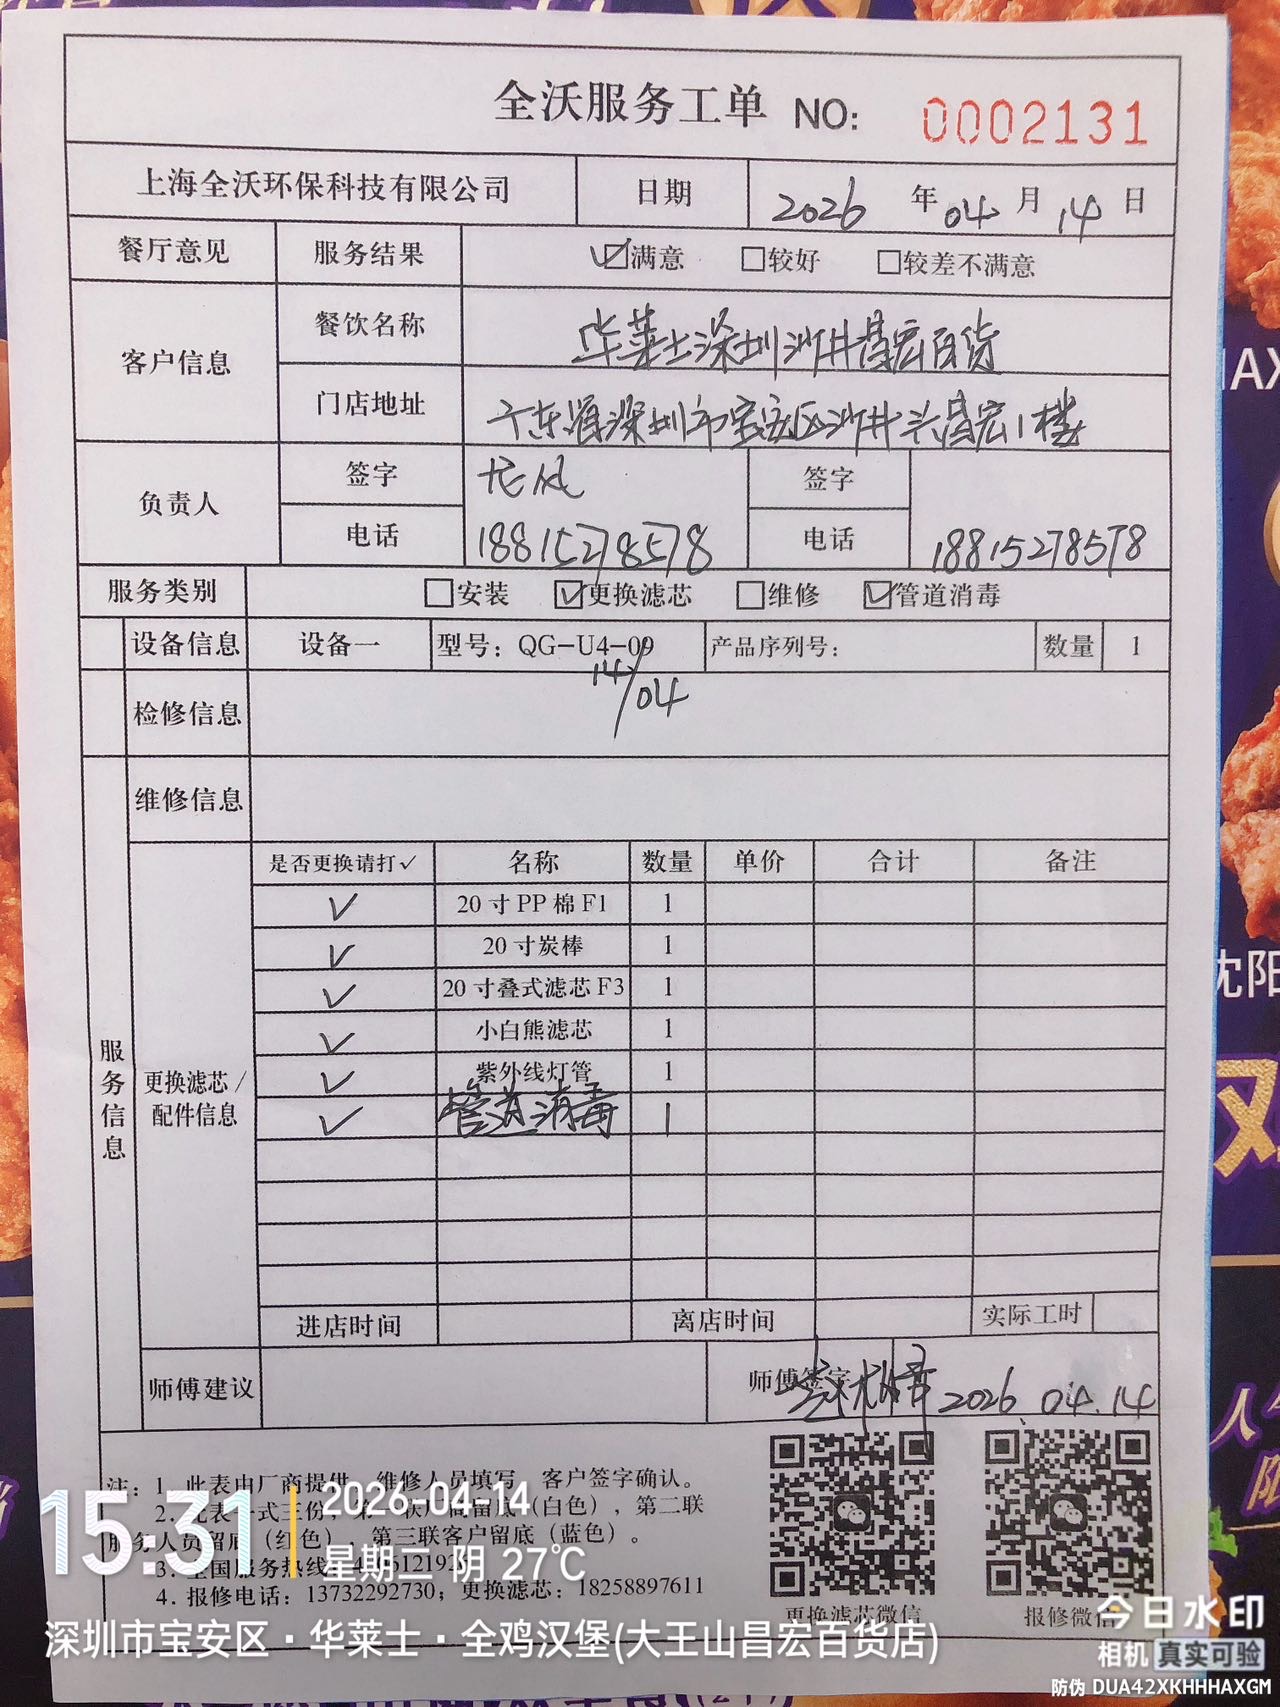 全沃服务工单 NO: 0002131
上海全沃环保科技有限公司 日期 2026 年 04 月 14 日
餐厅意见 服务结果 ☑满意 □较好 □较差不满意
客户信息 餐饮名称 华莱士深圳沙井昌宏百货
门店地址 广东省深圳市宝安区沙井头昌宏1楼
负责人 签字 签字
电话 18815278578 电话 18815278578
服务类别 □安装 ☑更换滤芯 □维修 ☑管道消毒
设备信息 设备一 型号：QG-U4-09 产品序列号： 数量 1
14/04
检修信息
维修信息
服务信息
更换滤芯/配件信息
是否更换请打✓ 名称 数量 单价 合计 备注
✓ 20寸PP棉F1 1
✓ 20寸炭棒 1
✓ 20寸叠式滤芯F3 1
✓ 小白熊滤芯 1
✓ 紫外线灯管 1
✓ 管道消毒 1
进店时间 离店时间 实际工时
师傅建议 师傅签字 2026.04.14
注：1. 此表由厂商提供，维修人员填写，客户签字确认。
2. 此表一式三份，第一联厂商留底（白色），第二联
服务人员留底（红色），第三联客户留底（蓝色）。
3. 全国服务热线
4. 报修电话：13732292730；更换滤芯：18258897611
更换滤芯微信 报修微信
15:31 2026-04-14
星期二 阴 27℃
深圳市宝安区·华莱士·全鸡汉堡(大王山昌宏百货店)
今日水印
相机 真实可验
防伪 DUA42XKHHHAXGM
沈阳